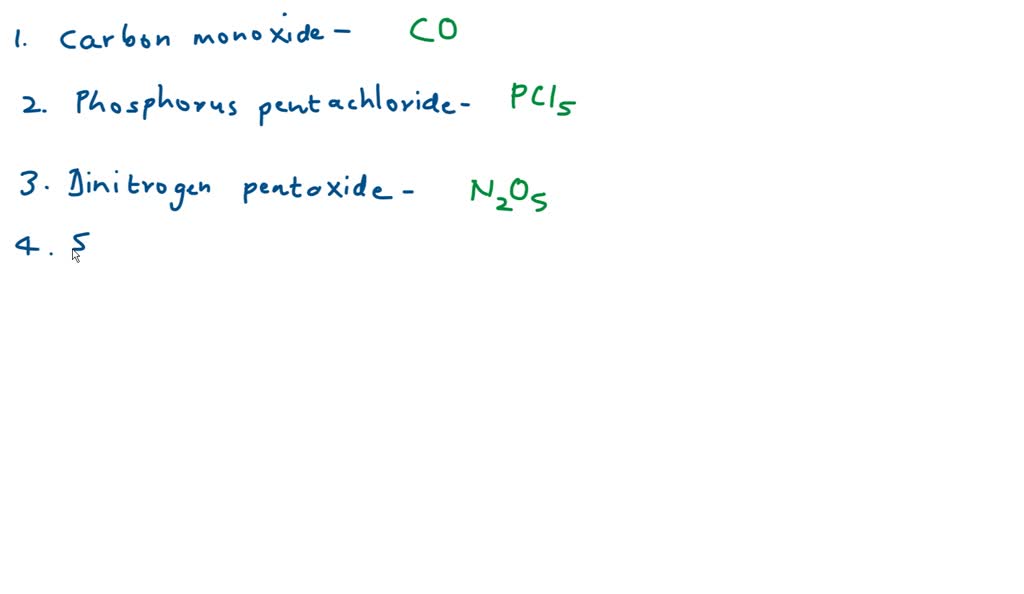 1. Carbon monoxide - CO
2. Phosphorus pentachloride - PCl5
3. Dinitrogen pentoxide - N2O5
4. S